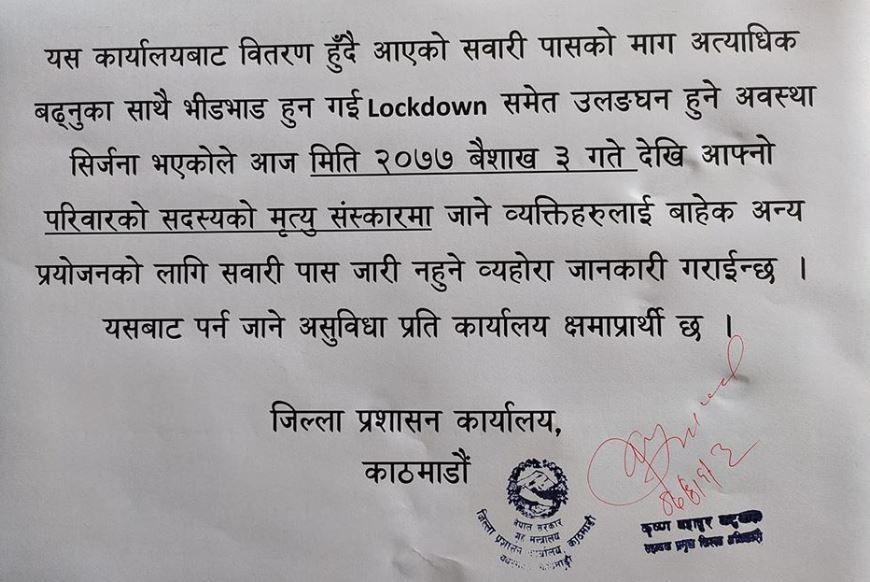 यस कार्यालयबाट वितरण हुँदै आएको सवारी पासको माग अत्याधिक
बढ्नुका साथै भीडभाड हुन गई Lockdown समेत उलङघन हुने अवस्था
सिर्जना भएकोले आज मिति २०७७ बैशाख ३ गते देखि आफ्नो
परिवारको सदस्यको मृत्यु संस्कारमा जाने व्यक्तिहरुलाई बाहेक अन्य
प्रयोजनको लागि सवारी पास जारी नहुने व्यहोरा जानकारी गराईन्छ ।
यसबाट पर्न जाने असुविधा प्रति कार्यालय क्षमाप्रार्थी छ ।
जिल्ला प्रशासन कार्यालय,
काठमाडौं
नेपाल सरकार
गृह मन्त्रालय
जिल्ला प्रशासन कार्यालय, काठमाडौं
कृष्ण बहादुर